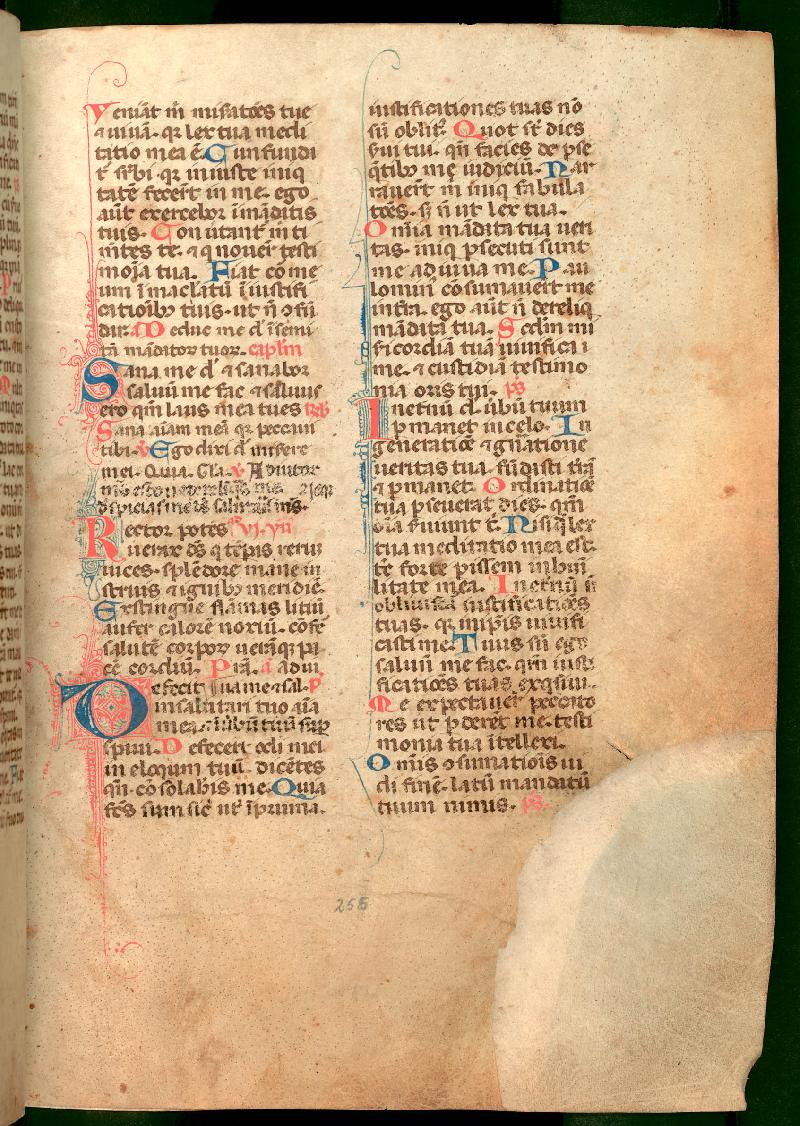 Veniāt m̄ misatōes tue
⁊ uiuā. qr lex tua medi
tatio mea ē. Cunfundi
r̄ sr̄bi. qr iniuste iniq
tatē fecer̄t in me. ego
aūt exercebor ī mādatis
tuis. Conutant̄ m̄ ti
mtes te. ⁊ q nouer̄ testi
monia tua. Fiat cor me
um īmaclatū ī iustifi
catioībꝫ tuis. ut n̄ ꝯfū
dar. Deduc me d̄ ī semi
tā mādator tuor. capl̄m
Sana me d̄ ⁊ sanabor
saluū me fac ⁊ saluus
ero qm̄ laus mea tu es
Sana aīam meā qr peccaui
tibi. v̄ Ego dixi d̄ misere
mei. Quia. Gla. v̄ Adiutor
d̄spicias me d̄s salutaris m̄s.
Rector potēs vi. vii
uerax d̄s q tēpis rerū
uices. splēdore mane in
struis ⁊ ignibꝫ meridiē.
Exstingue flāmas litiū
aufer calorē noxiū. cōfe
salutē corpor uerāqꝫ pa
cē cordiū. p̄s. ā adiu
ua me ⁊ sal. p̄s
Defecit
in salutari tuo aīa
mea ⁊ ī ūbū tuū sup
spaui. Defecer̄t ocli mei
in eloqum tuū. dicētes
qn̄. cōsolabis me. Quia
fc̄s sum sic̄ uter ī pruina.
iustificationes tuas nō
sū oblit᷒. Quot st̄ dies
serui tui. qn̄ facies de pse
q̄tibꝫ me iudiciū. Nar
rauer̄t m̄ iniq fabula
tōes. sꝫ n̄ ut lex tua.
Omīa mādata tua ueri
tas. iniq psecuti sunt
me adiuua me. Pau
lominꝰ cōsumauer̄t me
in tr̄a. ego aūt n̄ dereliq
mādata tua. Scd̄m mi
sericordiā tuā uiuifica
me. ⁊ custodiā testimo
nia oris tui. p̄s
In etnū d. ūbū tuum
pmanet in celo. In
generatiōe ⁊ gn̄atione
ueritas tua. fūdasti tr̄ā
⁊ pmanet. Ordinatiōe
tua pseuerat dies. qm̄
oīa seruiunt t. Nisi q lex
tua meditatio mea est.
tc̄ forte piissem in hui
litate mea. In etnū n̄
obliuiscar iustificatiōes
tuas. qr in ipis uiuifi
casti me. Tuus sū ego
saluū me fac. qm̄ iusti
ficatiōes tuas exqsiui.
Me expectauer̄t peccato
res ut pderēt me. testi
monia tua ītellexi.
Omīs ꝯsumatiōis ui
di finē. latū mandatū
tuum nimis. p̄s
255